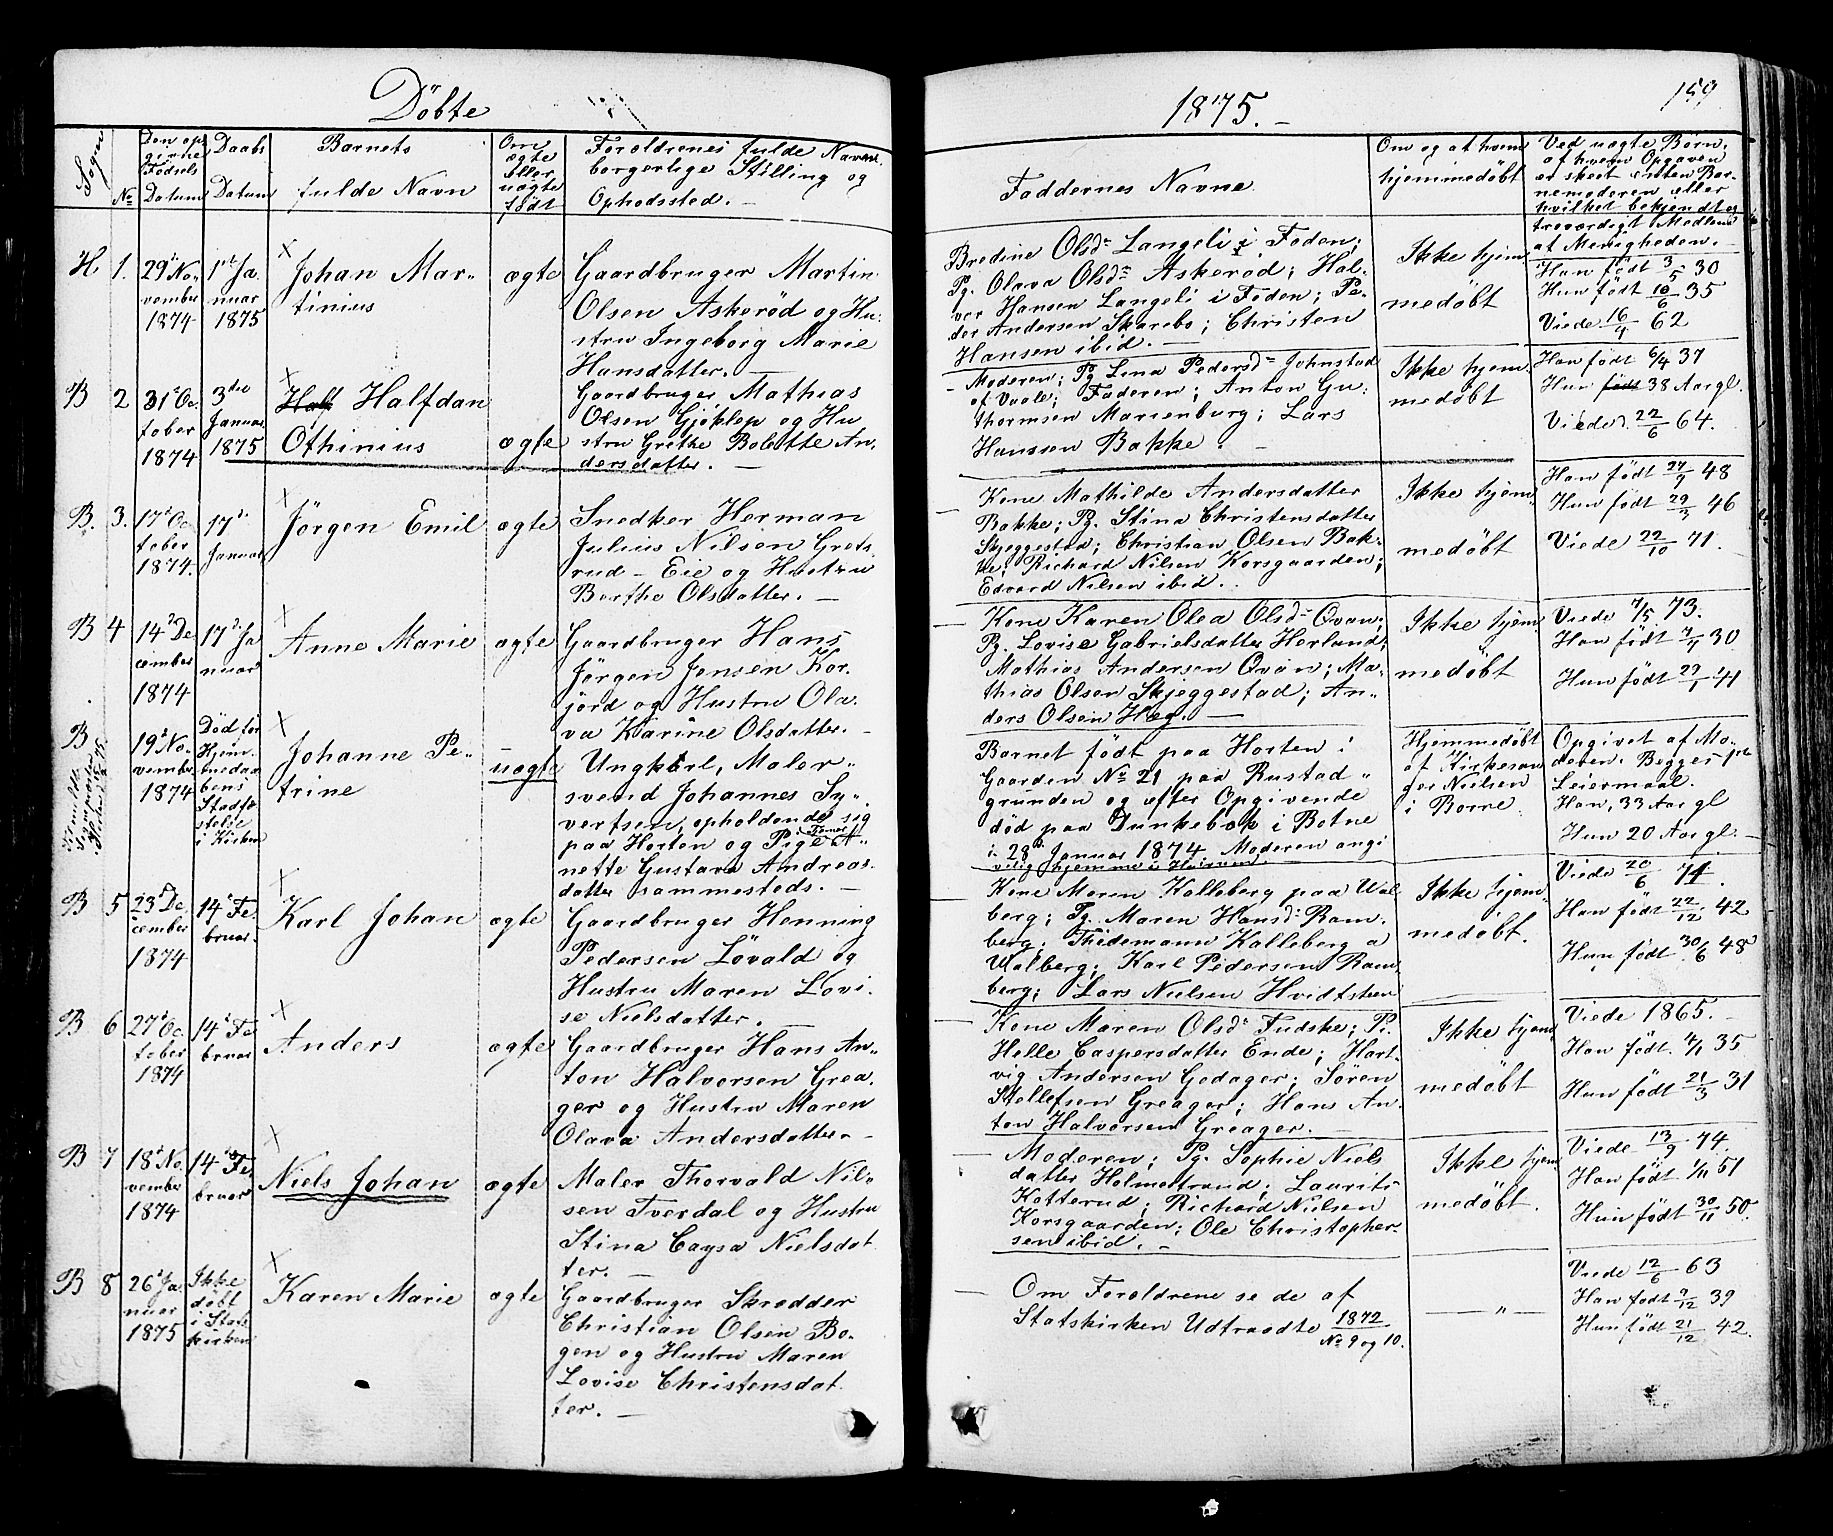 Döbte
1875.
159
Sogn
No
Den op
givne
Födsels
Datum
Daabs
Datum
Barnets
fulde Navn
Om
ægte
eller
uægte
født
Forældrenes fulde Navne,
borgerlige Stilling og
Opholdssted. —
Faddernes Navne
Om og at hvem
hjemmedøbt
Ved uægte Børn,
af hvem Opgaven
er skeet enten Bar-
nemoderen eller
hvilket bekjendt og
troværdigt Medlem
af Menigheden. —
H. 1.
29d No-
vember
1874
1ste Ja
nuar
1875
Johan Mar-
tinius
ægte
Gaardbruger Martin
Olsen Askerød og Hu-
stru Ingeborg Marie
Hansdatter. —
Bredine Olsd: Langeli i Foden;
Pg. Olava Olsd: Askerød; Hal-
vor Hansen Langeli i Foden; Pe-
der Andersen Skarebo; Christen
Hansen ibid. —
Ikke hjem-
medøbt
Han født 3/5 30
Hun født 16/6 35
Viede 16/4 62
B 2
31d Oc
tober
1874
3die
Januar
1875
Half Halfdan
Othinius
ægte
Gaardbruger Mathias
Olsen Gjöklep og Hu
stru Grethe Bolette An-
dersdatter. —
Moderen; Pg Lina Pedersd: Johnstad
af Vaale; Faderen; Anton Gu-
thormsen Marienburg; Lars
Hanssen Bakke.
Ikke hjem-
medøbt
Han født 6/4 37
Hun født 38 Aar gl.
Viede 22/6 64.
B. 3.
17d Oc
tober
1874.
17d
Januar
Jörgen Emil
ægte
Snedker Herman
Julius Nilsen Grets-
rud-Eie og Hustru
Berthe Olsdatter. —
Kone Mathilde Andersdatter
Bakke; Pg. Stina Christensdatter
Skjeggestad; Christian Olsen Bak-
ke; Richard Nilsen Korsgaarden;
Edvard Nilsen ibid.
Ikke hjem-
medøbt
Han født 27/9 48
Hun født 29/3 46
Viede 22/10 71.
B 4
14d De
cember
1874
17d Ja
nuar
Anne Marie
ægte
Gaardbruger Hans
Jörgen Jensen Kor-
jörd og Hustru Ola-
va Karine Olsdatter. —
Kone Karen Olea Olsd: Ovan;
Pg. Lovise Gabrielsdatter Herland;
Mathias Andersen Ovan; Ma-
thias Olsen Skjeggestad; An-
ders Olsen Hæg. —
Ikke hjem-
medøbt
Viede 4/5 73.
Han født 4/4 30
Hun født 29/1 41
B
19d No-
vember
1874
Död før
Hjem-
medaa-
bens
Stadfæ
stelse
i Kirken
Johanne Pe-
trine
uægte
Ungkarl, Maler-
svend Johannes Sy-
vertsen, opholdende sig
paa Horten og Pige A-
nette Gustava Andreas-
datter sammesteds. —
Barnet født paa Horten i
Gaarden No 21 paa Rustad-
grunden og efter Opgivende
död paa Dunkebæk i Botne
i 28d Januar 1874 Moderen angi
velig hjemme i
Hjemmedøbt
af Kirkesan
ger Nielsen
i Borre.
Opgivet af Mo-
deren. Begges 1ste
Leiermaal.
Han, 33 Aar gl
Hun 20 Aar gl.
B 5
23d De
cember
1874
14d Fe
bruar.
Karl Johan
ægte
Gaardbruger Henning
Pedersen Lövald og
Hustru Maren Lovi-
se Nielsdatter.
Kone Maren Kalleberg paa Wal
berg; Pg. Maren Hansd: Ram-
berg; Thidemann Kalleberg a
Walberg; Karl Pedersen Ram-
berg; Lars Nielsen Hvidtsteen
Ikke hjem-
medøbt.
Viede 20/6 74.
Han født 22/12 42
Hun født 30/6 48
B 6
27d Oc
tober
1874
14d Fe
bruar
Anders
ægte
Gaardbruger Hans An-
ton Halvorsen Grea-
ger og Hustru Maren
Olava Andersdatter. —
Kone Maren Olsd: Fudske; Pi
Helle Caspersdatter Ende; Hart-
vig Andersen Gedager; Sören
Stellefsen Greager; Hans An-
ton Halvorsen Greager. —
Ikke hjem-
medøbt
Viede 1865. —
Han født 4/1 35
Hun født 21/3 31
B 7
18d No
vember
1874
14d Fe
bruar
Niels Johan
ægte
Maler Thorvald Nil-
sen Tverdal og Hustru
Stina Caysa Nielsdat
ter. —
Moderen; Pg. Sophie Niels
datter Holmestrand; Laurits
Kotterud; Richard Nielsen
Korsgaarden; Ole Christopher-
sen ibid. —
Ikke hjem-
medøbt.
Viede 13/9 74.
Han født 1/11 51
Hun født 30/11 50.
B 8
26d Ja
nuar
1875
Ikke
döbt
i Stats
kirken
Karen Marie
ægte
Gaardbruger Skrædder
Christian Olsen Bo-
gen og Hustru Maren
Lovise Christensdat
ter. —
Om Forældrene se de af
Statskirken Udtraadte 1872
No. 9 og 10.
— „ —
Viede 12/6 63
Han født 9/12 39
Hun født 21/12 42.